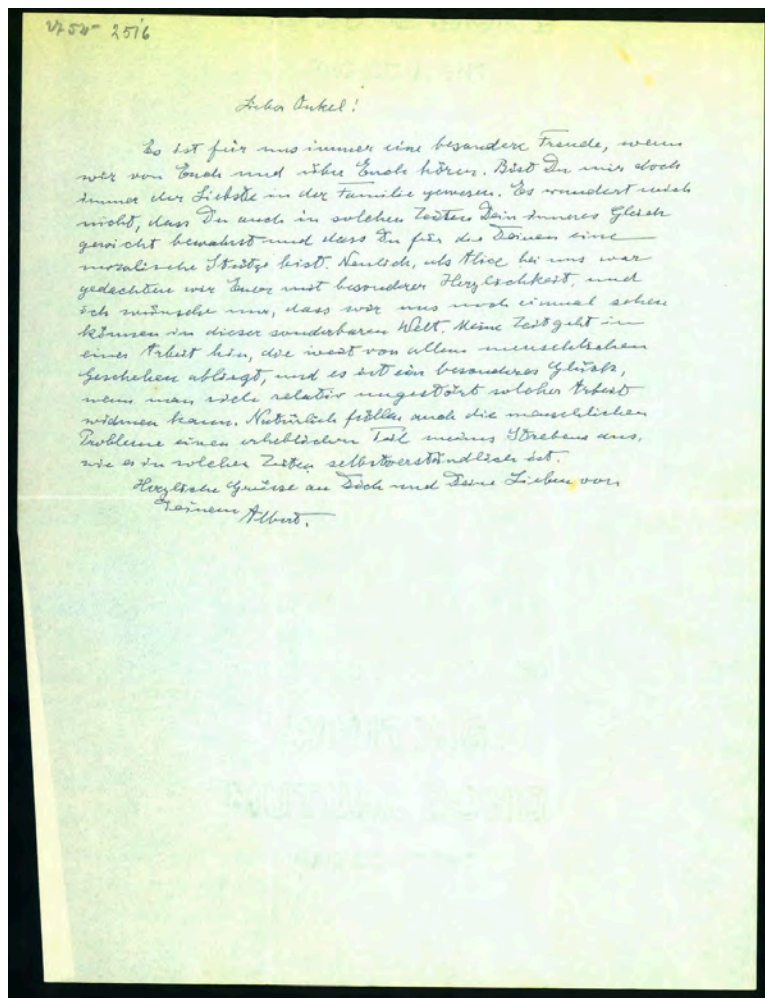 2516
Lieber Onkel!
Es ist für uns immer eine besondere Freude, wenn
wir von Euch und über Euch hören. Bist Du mir doch
immer der Liebste in der Familie gewesen. Es wundert mich
nicht, dass Du auch in solchen Zeiten Dein inneres Gleich
gewicht bewahrst und dass Du für die Deinen eine
moralische Stütze bist. Neulich, als Alice bei uns war
gedachten wir Euer mit besonderer Herzlichkeit, und
ich wünsche nur, dass wir uns noch einmal sehen
können in dieser sonderbaren Welt. Meine Zeit geht in
einer Arbeit hin, die weit von allem menschlichen
Geschehen abliegt, und es ist ein besonderes Glück,
wenn man sich relativ ungestört solcher Arbeit
widmen kann. Natürlich füllen auch die menschlichen
Probleme einen erheblichen Teil meines Strebens aus,
wie es in solchen Zeiten selbstverständlich ist.
Herzliche Grüsse an Dich und Deine Lieben von
Deinem Albert.